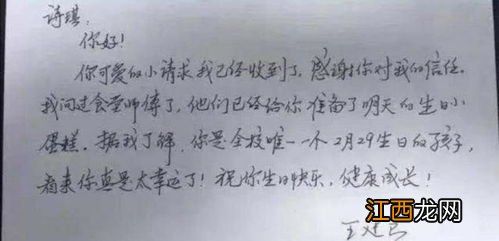 诗琪：
你好！
你可爱的小请求我已经收到了，感谢你对我的信任。
我问过食堂师傅了，他们已经给你准备了明天的生日小
蛋糕。据我了解，你是全校唯一一个2月29生日的孩子，
看来你真是太幸运了！祝你生日快乐，健康成长！
王建良
江西龙网